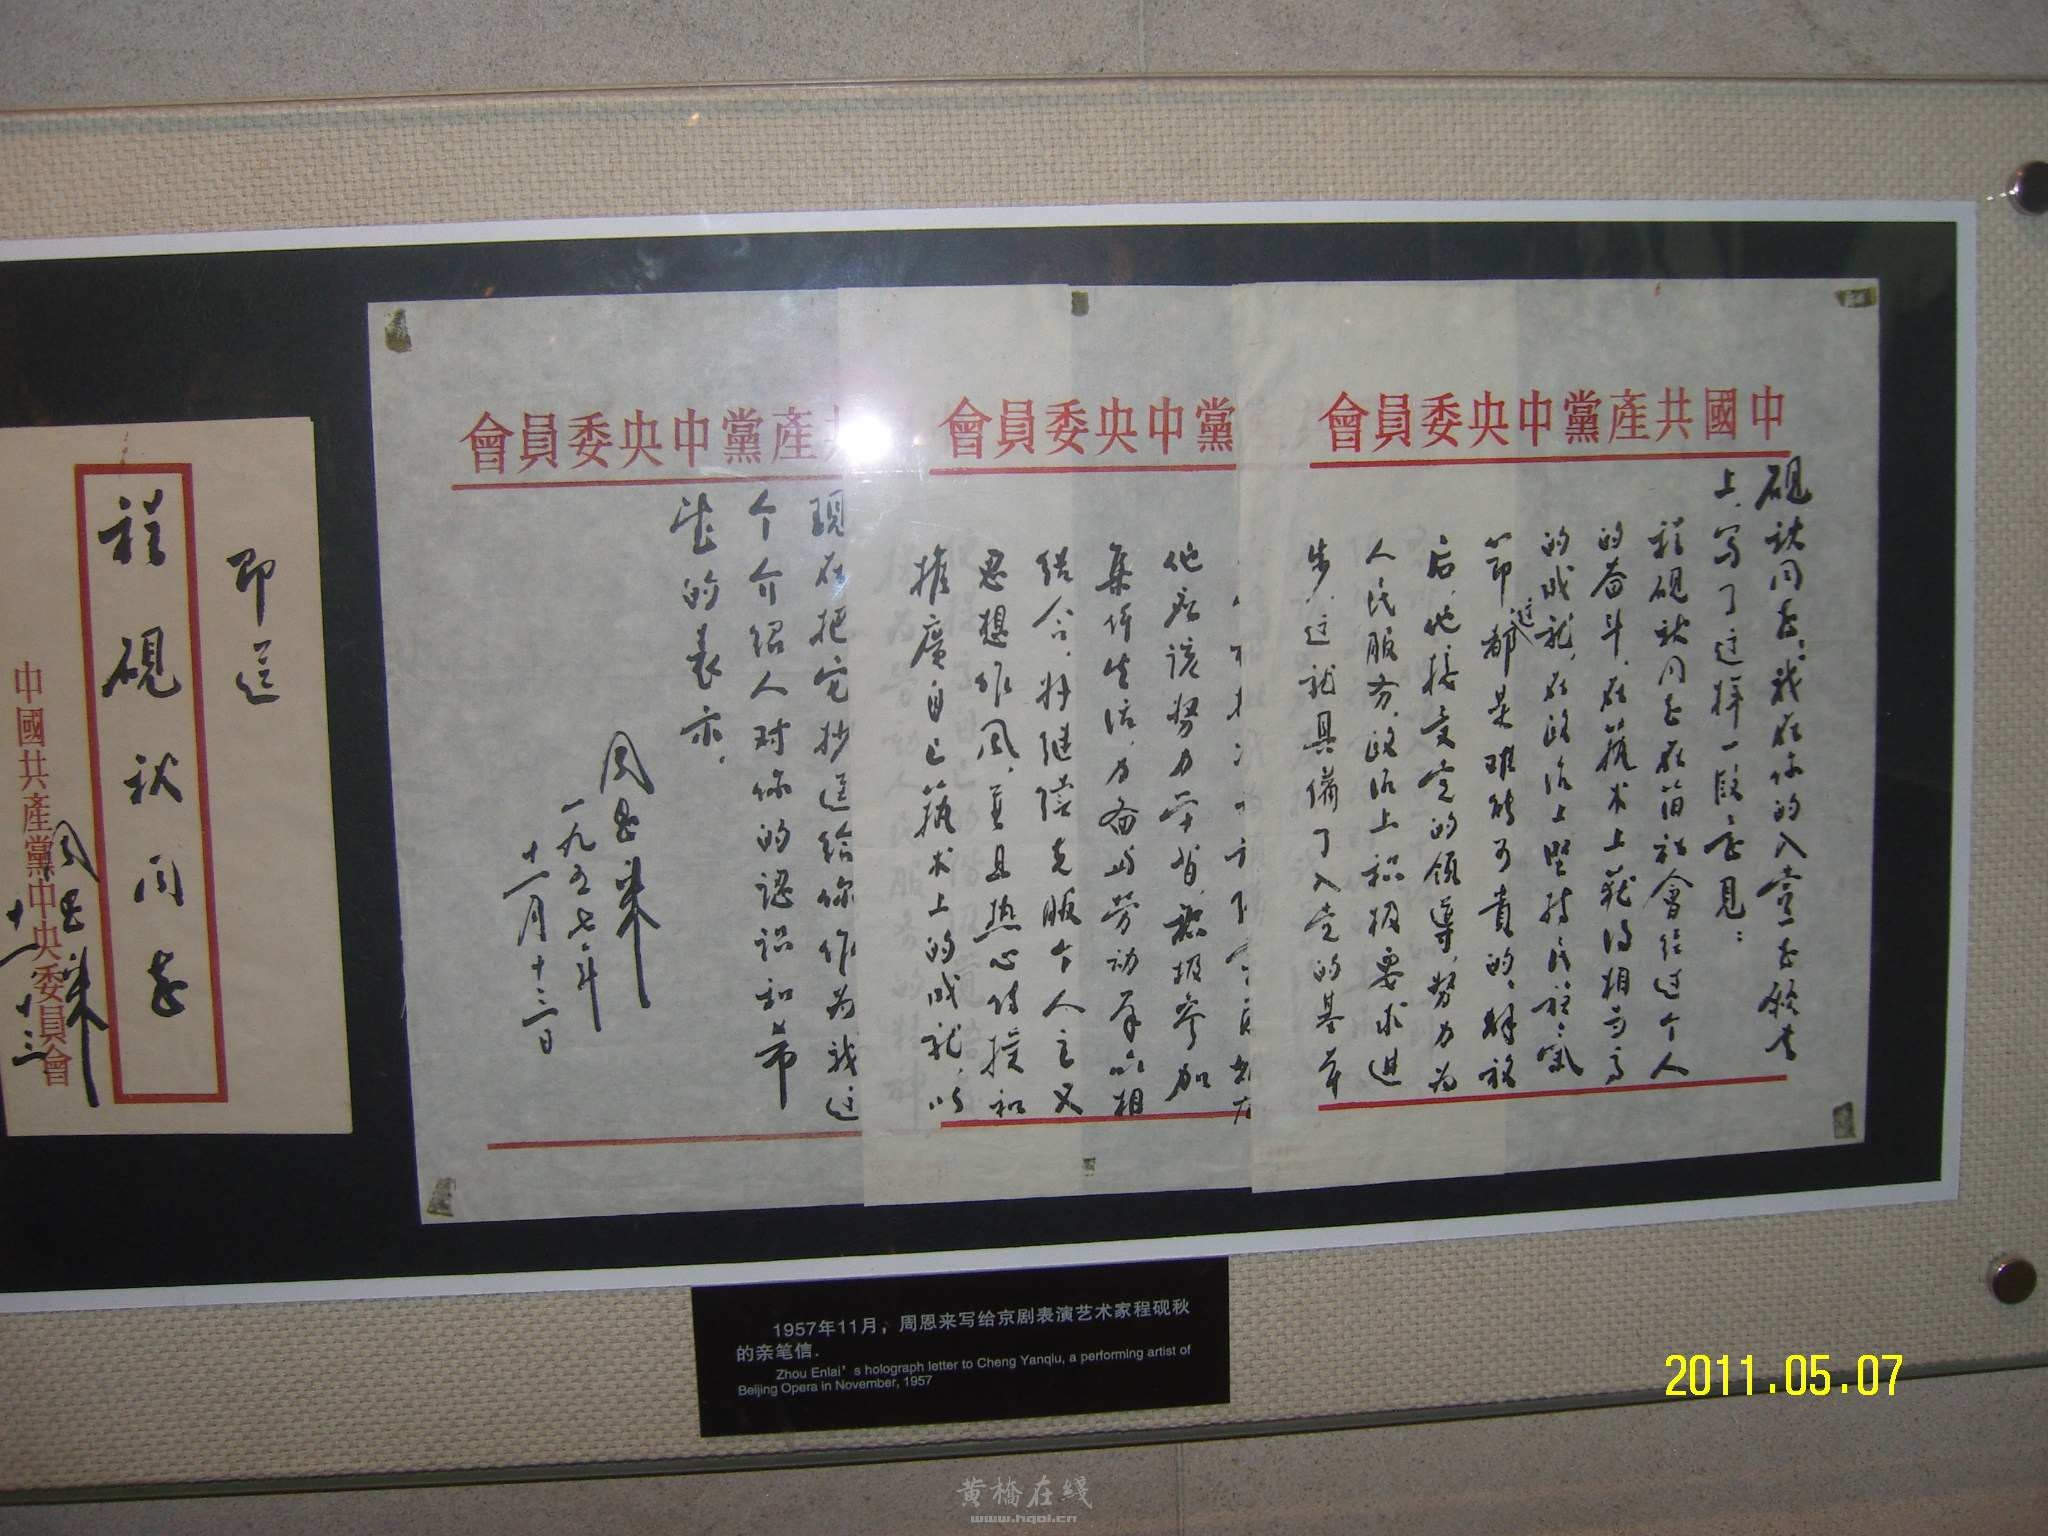 中國共產黨中央委員會
硯秋同志：我在你的入党志愿书
上，写了这样一段意见：
程硯秋同志在旧社會经过个人
的奋斗，在藝术上获得相当高
的成就，在政治上坚持民族气
节，这都是难能可贵的。解放
后，他接受党的領導，努力为
人民服务，政治上积极要求进
步，这就具備了入党的基本
黨中央委員會
他应该努力学习，积极参加
集体生活，力图与劳动群众相
结合，好继续克服个人主义
思想作风，并且热心传授和
推廣自己藝术上的成就，以
共產黨中央委員會
現在把它抄送给你，作为我这
个介绍人对你的認识和希
望的表示。
周恩来
一九五七年
十一月十三日
即送
程硯秋同志
周恩来
十一 十三
中國共產黨中央委員會
1957年11月，周恩来写给京剧表演艺术家程砚秋
的亲笔信.
Zhou Enlai's holograph letter to Cheng Yanqiu, a performing artist of
Beijing Opera in November, 1957
2011.05.07
黄橋在綫
www.hqol.cn